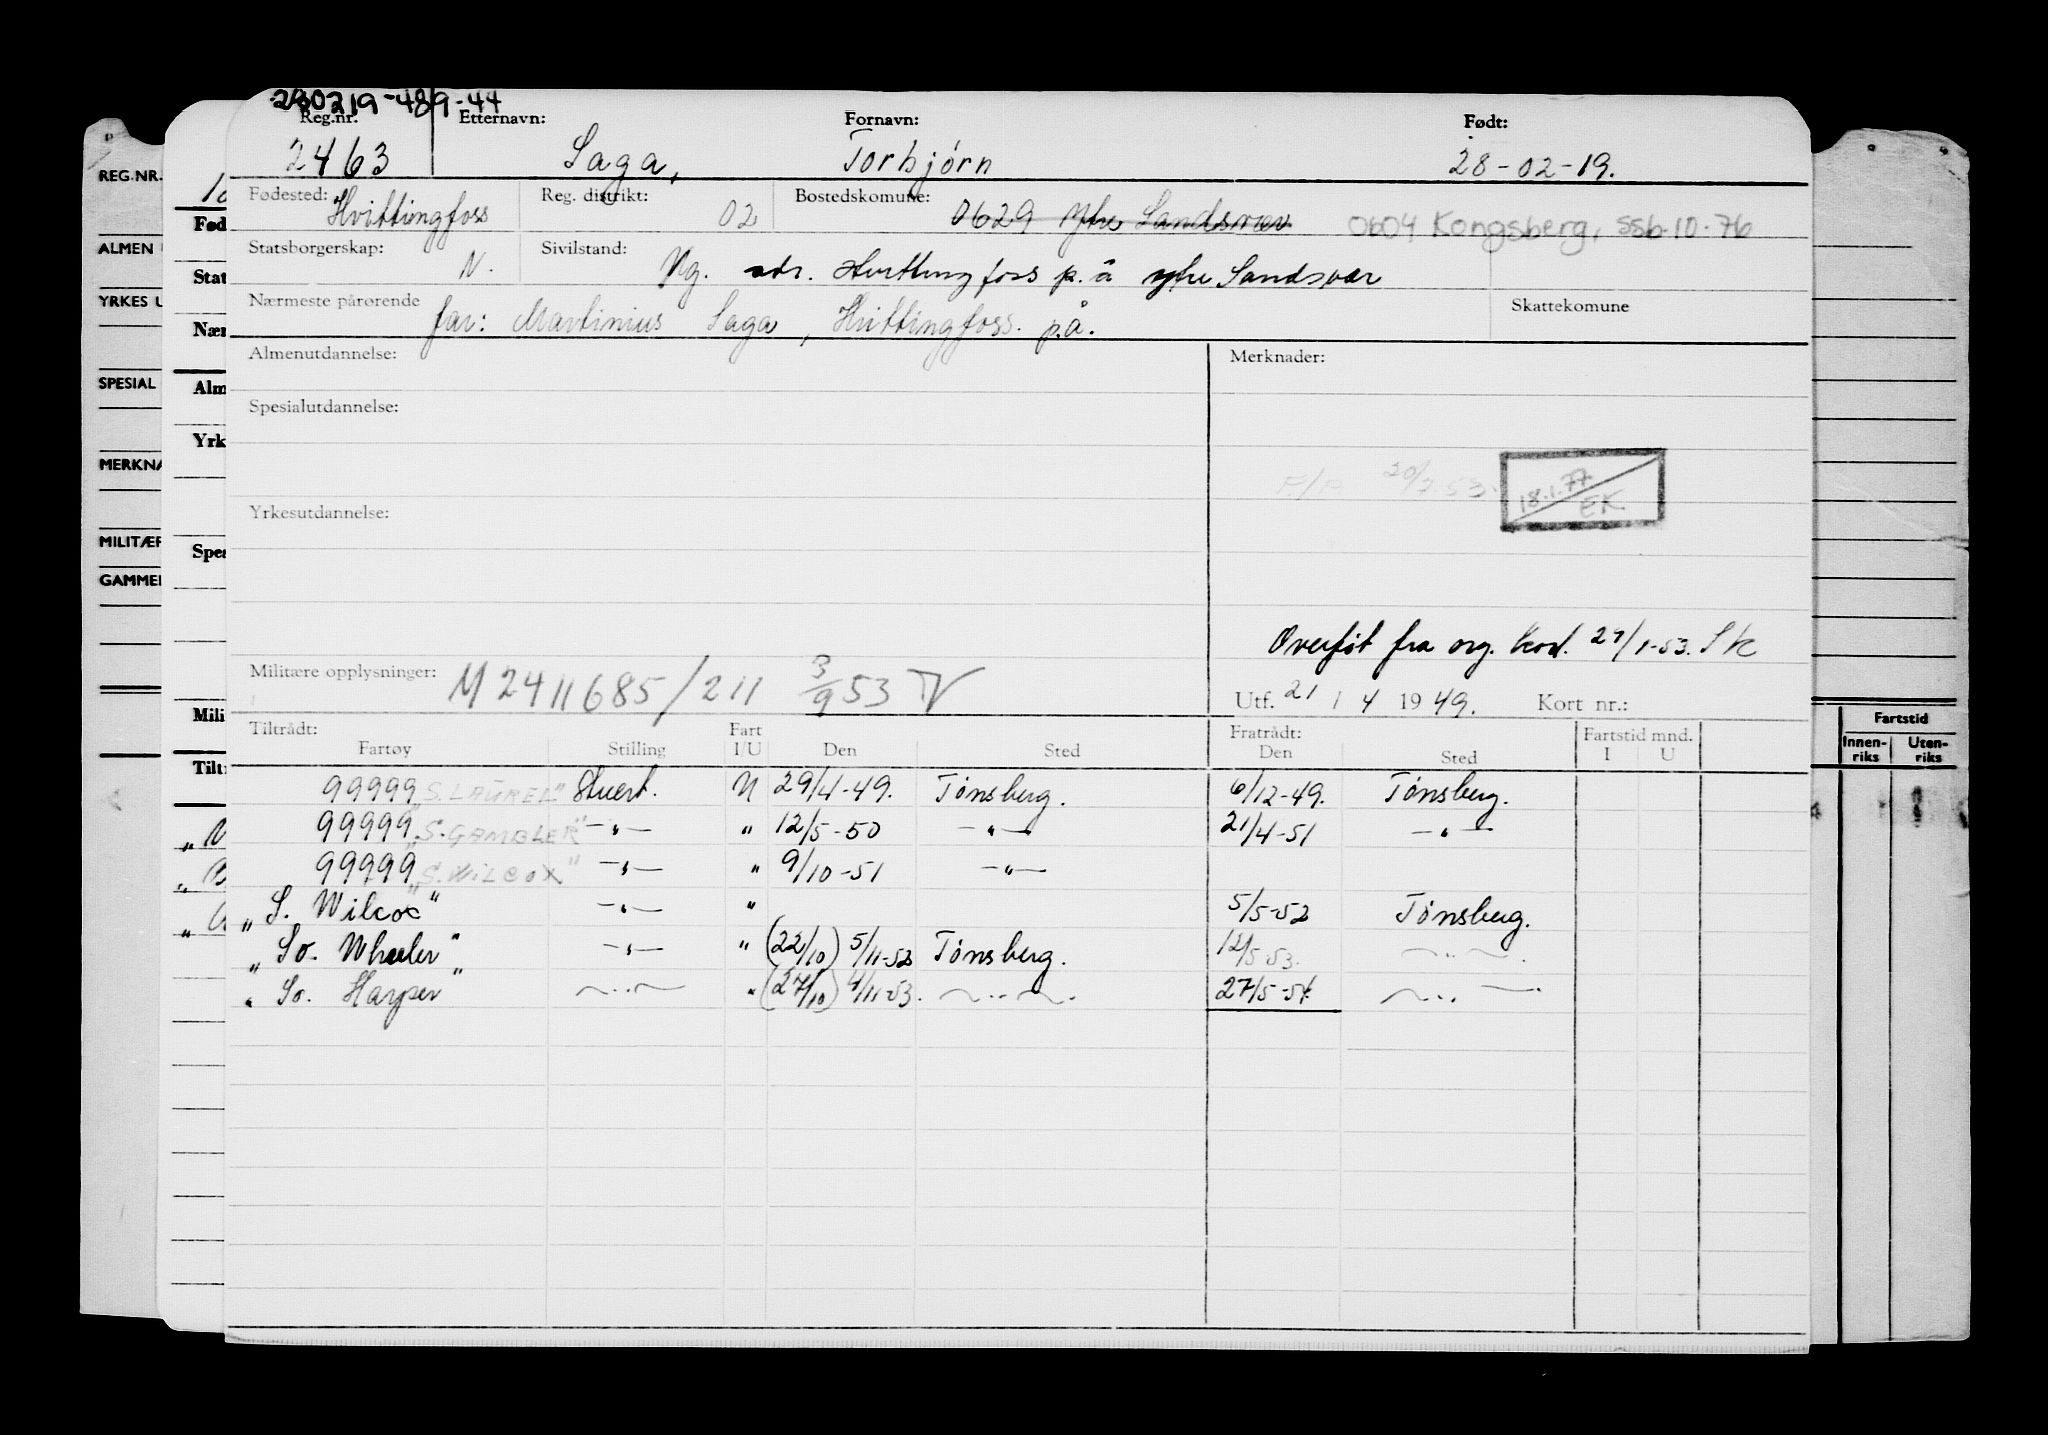 280219-489-44
Reg.nr. Etternavn: Fornavn: Født:
2463 Saga, Torbjørn 28-02-19.
Fødested: Hvittingfoss Reg. distrikt: 02 Bostedskomune: 0629 Ytre Sandsvær 0604 Kongsberg, SSb-10-76
Statsborgerskap: N. Sivilstand: Ug. adr. Hvittingfoss p.å ytre Sandsvær
Nærmeste pårørende far: Martinius Saga, Hvittingfoss. p.å. Skattekomune
Almenutdannelse: Merknader:
Spesialutdannelse:
20/7.53. 18.1.77 EK
Yrkesutdannelse:
Overført fra org. kort. 27/1-53. Sk
Militære opplysninger: M 2411685/211 3/9 53 TV
Utf. 21 / 4 1949. Kort nr.:
Tiltrådt: Fart Fratrådt: Fartstid mnd.
Fartøy Stilling I/U Den Sted Den Sted I U
99999 „S. LAUREL" Stuert. U 29/4-49. Tønsberg. 6/12-49. Tønsberg.
99999 „S. GAMBLER" —„— " 12/5-50 —„— 21/4-51 —„—
99999 „S. WILCOX" —„— " 9/10-51 —„—
„S. Wilcox" —„— " 5/5-52 Tønsberg.
„So. Wheeler" —„— " (22/10) 5/11-52 Tønsberg. 12/5-53. —„—.
„So. Harper" —„— " (27/10) 4/11-53. —„—. 27/5-54. —„—.
REG.NR.
ALMEN
YRKES U
SPESIAL
MERKNA
MILITÆR
GAMMEL
Fød
Stat
Nær
Alm
Yrk
Spes
Mili
Tilt
Fartstid
Innen-riks Uten-riks